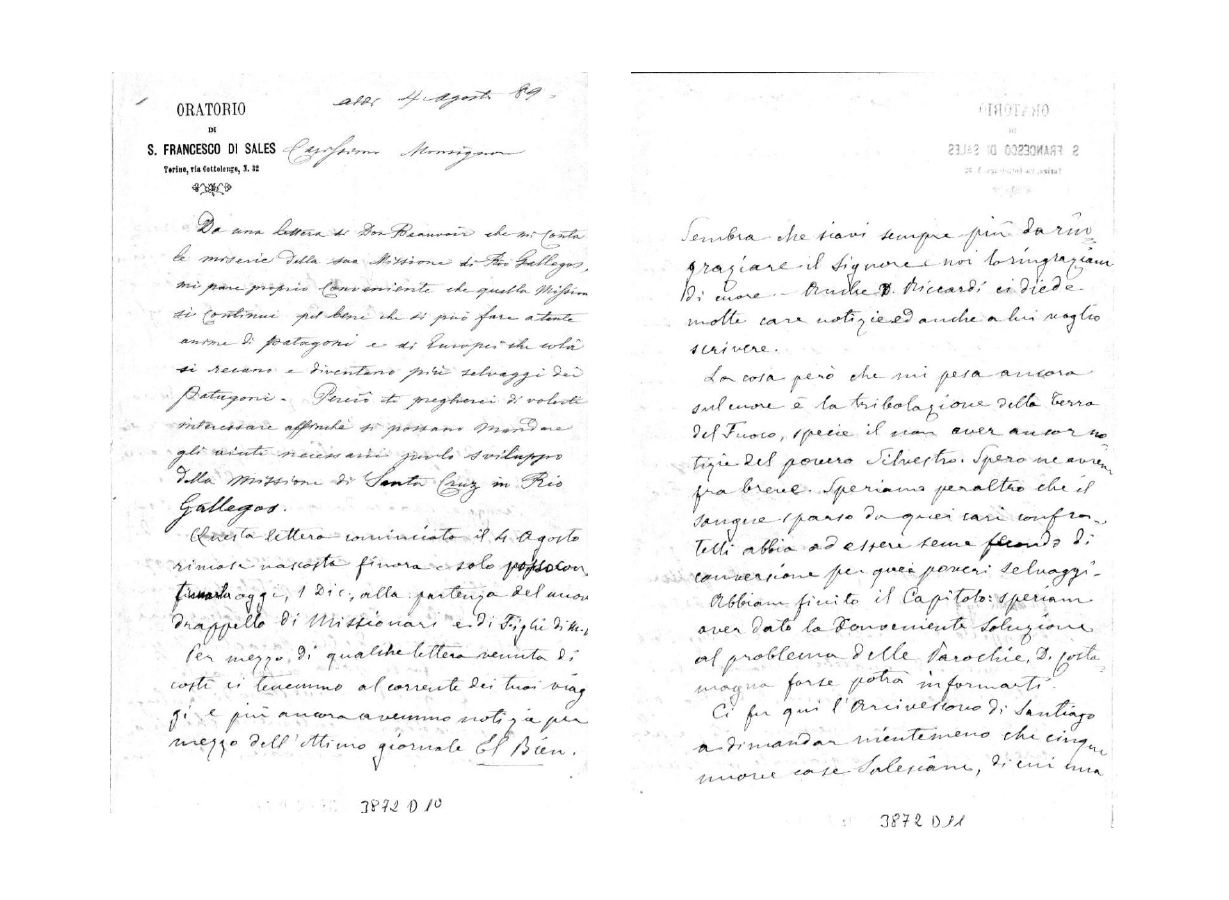 addì 4 Agosto 89.
ORATORIO
DI
S. FRANCESCO DI SALES
Torino, via Cottolengo, N. 32
Carissimo Monsignore
Da una lettera di Don Beauvoir che mi conta
le miserie della sua Missione di Rio Gallegos,
mi pare proprio conveniente che quella Mission
si continui pel bene che si può fare a tante
anime di Patagoni e di Europei che colà
si recano e diventano più selvaggi dei
Patagoni. Perciò ti pregherei di volerti
interessare affinchè si possano mandare
gli aiuti necessarii per lo sviluppo
della Missione di Santa Cruz in Rio
Gallegos.
Questa lettera cominciata il 4 Agosto
rimase nascosta finora e solo posso con
oggi, 1 Dic., alla partenza del nuov
drappello di Missionari e di Figlie di M.
Per mezzo di qualche lettera venuta di
costì ci tenemmo al corrente dei tuoi viag
gi e più ancora avemmo notizia per
mezzo dell'ottimo giornale El Bien.
3872 D 10
ORATORIO
DI
S FRANCESCO DI SALES
Sembra che siavi sempre più da rin
graziare il Signore e noi lo ringraziam
di cuore. Anche D. Riccardi ci diede
molte care notizie ed anche a lui voglio
scrivere.
La cosa però che mi pesa ancora
sul cuore è la tribolazione della Terra
del Fuoco, specie il non aver ancor no
tizie del povero Silvestro. Spero ne avrem
fra breve. Speriamo peraltro che il
sangue sparso da quei cari confra-
telli abbia ad essere seme fecondo di
conversione per quei poveri selvaggi.
Abbiam finito il Capitolo: speriam
aver dato la conveniente soluzione
al problema delle Parochie, D. Costa
magna forse potrà informarti.
Ci fu qui l'Arcivescovo di Santiago
a dimandar nientemeno che cinque
nuove case Salesiane, di cui una
3872 D 11